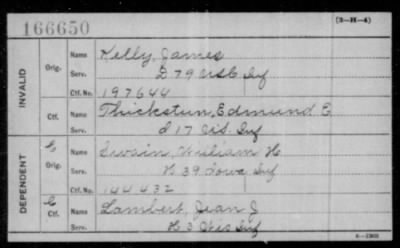 166650
(3-H-4)
INVALID
Orig.
Name Kelly, James
Serv. D 79 USC Inf
Ctf. No. 197644
Ctf.
Name Thickstun, Edmund E
Serv. I 17 Inf
DEPENDENT
Orig.
Name Swain, William H
Serv. H 39 Iowa Inf
Ctf. No. 144432
Ctf.
Name Lambert, Jean J
Serv. H 3 Inf